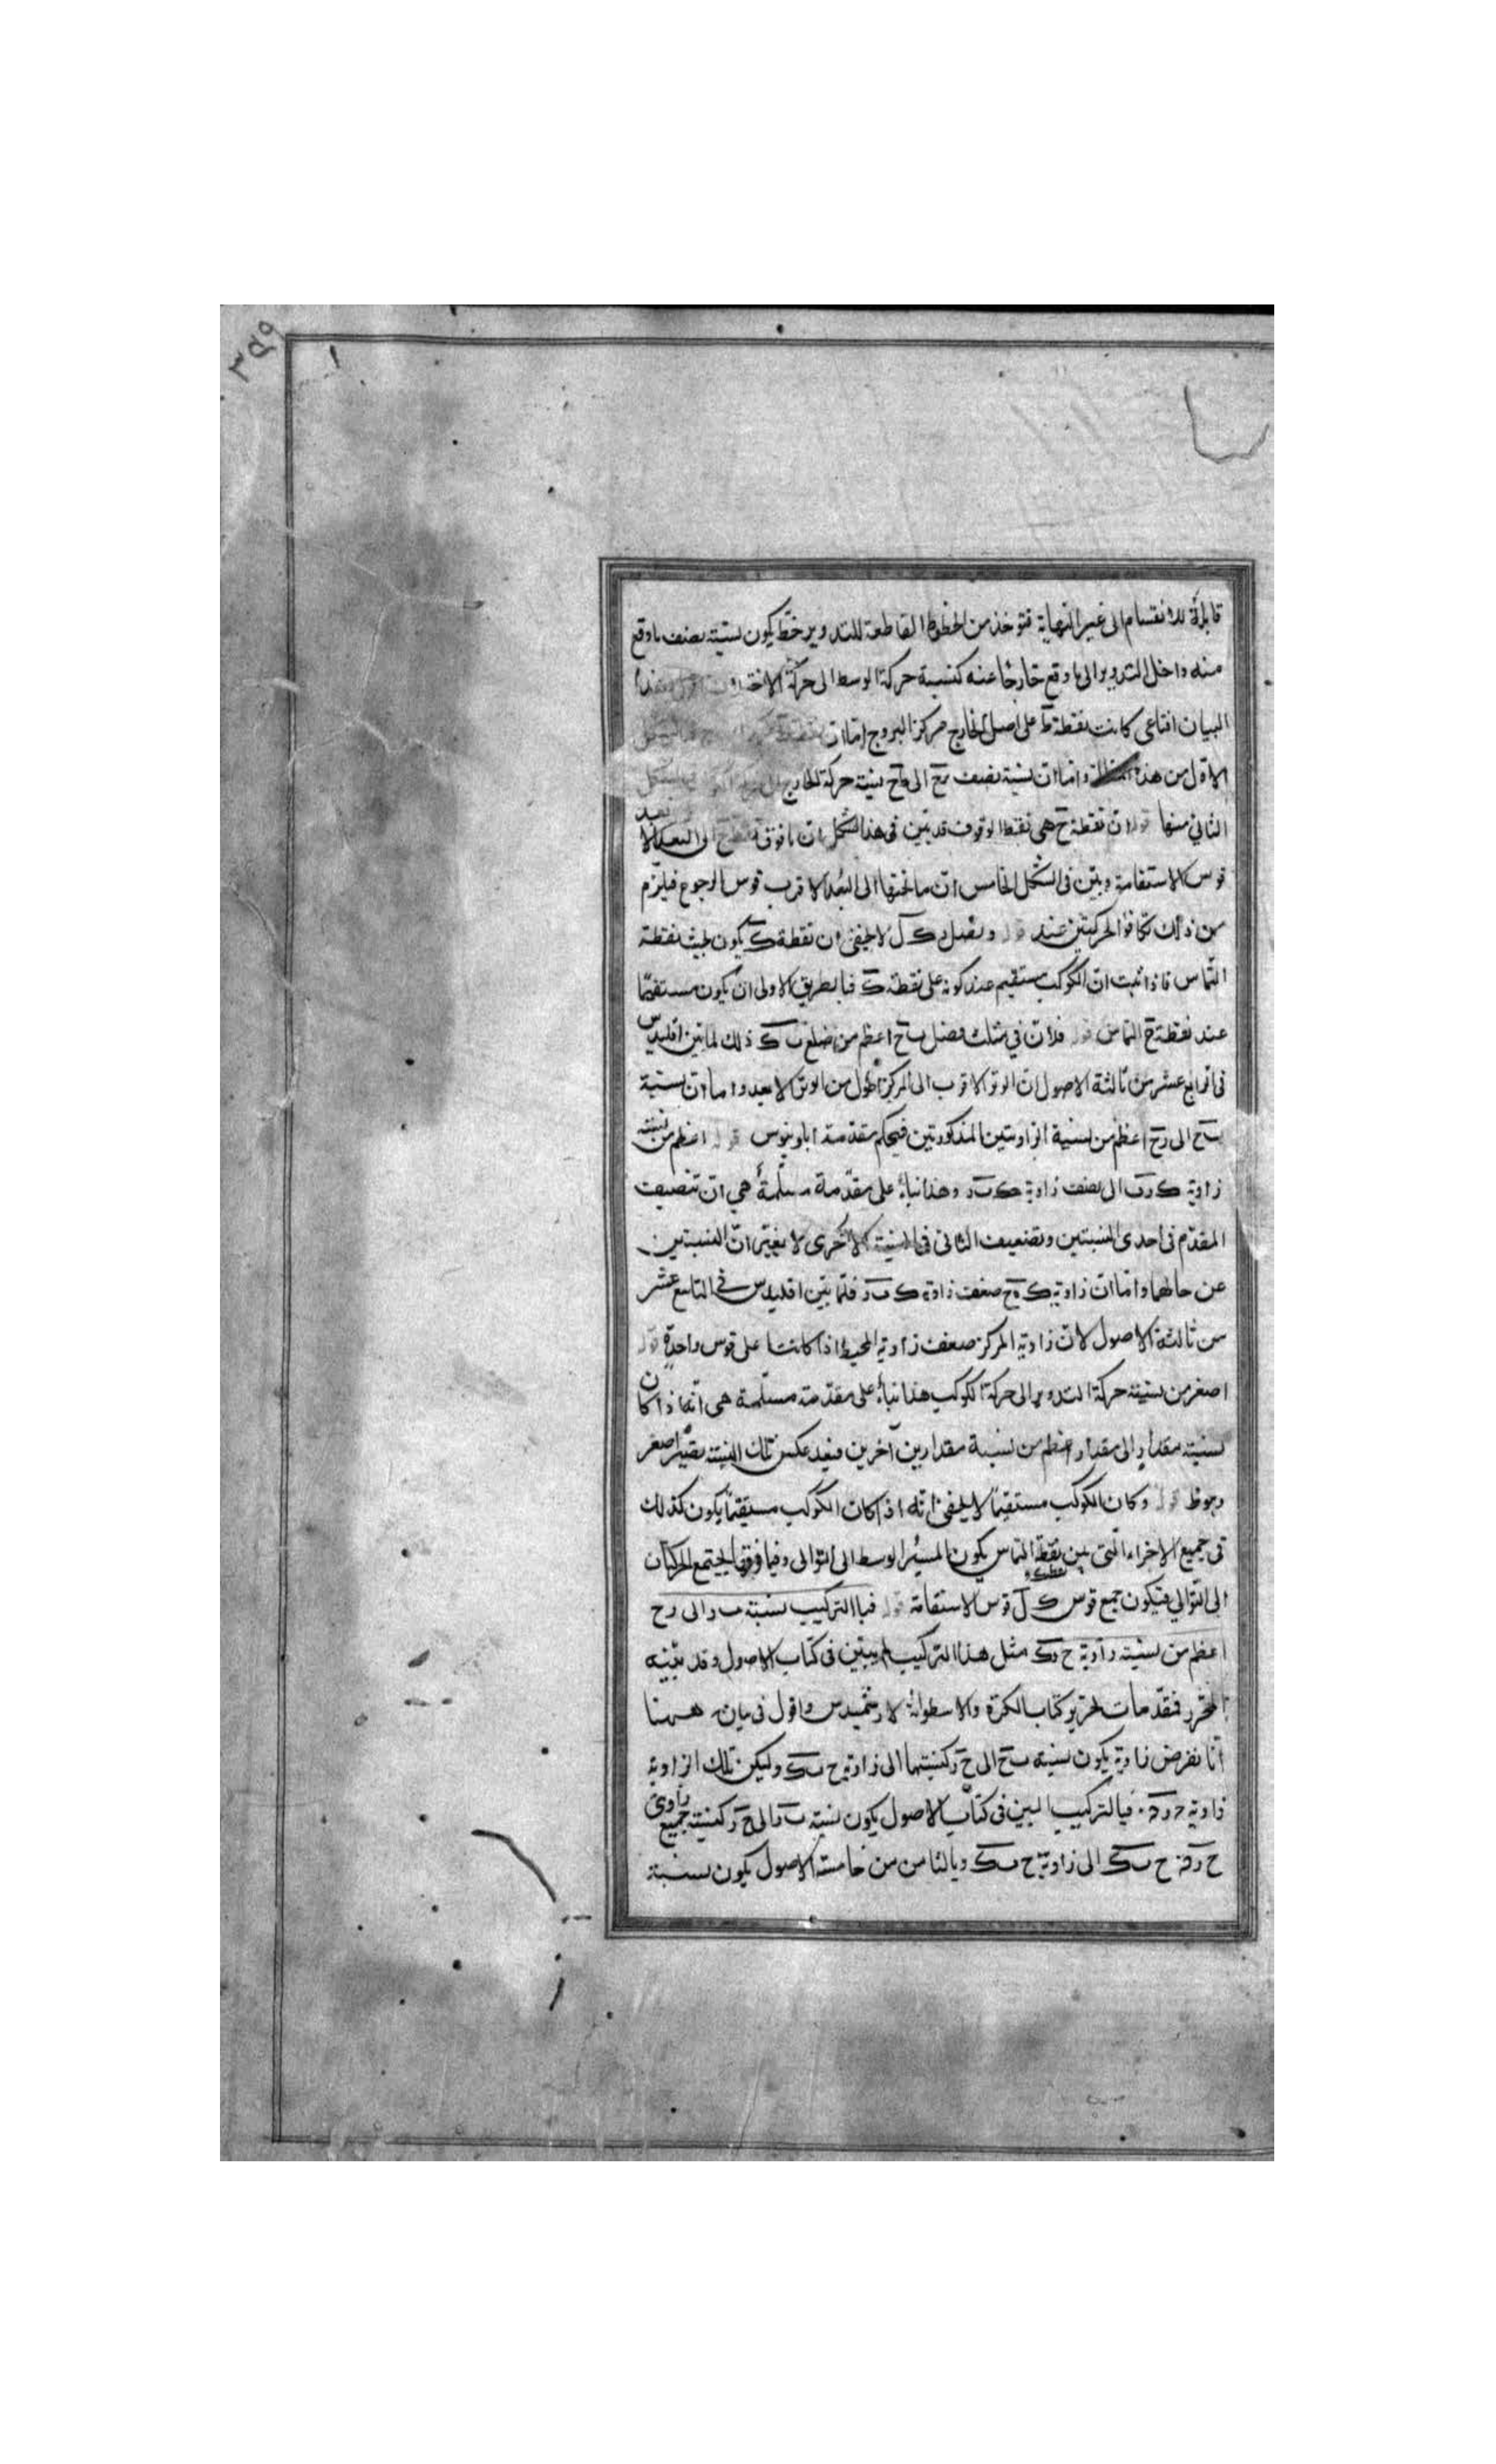 ٣٥٩
قابلة للانقسام الى غير النهاية فتوخذ من الخطوط القاطعة للتدوير خط يكون نسبته نصف ما وقع
منه داخل التدوير الى ما وقع خارجا عنه كنسبة حركة الوسط الى حركة الاختلاف
البيان اقناعى كانت نقطة ط على اصل الخارج مركز البروج اما ان
الاول من هذه المقالة واما ان نسبة نصف الى نسبة حركة الخارج
الثانى منها قوله ان نقطة ح هى نقطة الوقوف قد بين فى هذا الشكل ان ما فوق نقطة ح الى البعد الا بعد
قوس الاستقامة وبين فى الشكل الخامس ان ما تحتها الى البعد الاقرب قوس الرجوع فيلزم
من ذلك تكافؤ الحركتين عند قوله ونصل ك ل لا يخفى ان نقطة ك يكون بحيث نقطة
التماس فاذا ثبت ان الكوكب مستقيم عند كونه على نقطة ك فبالطريق الاولى ان يكون مستقيما
عند نقطة ح التماس قوله فلان فى مثلث فضل ب ح اعظم من ضلع ب ك ذلك لما بين اقليدس
فى الرابع عشر من ثالثة الاصول ان الوتر الاقرب الى المركز اطول من الوتر الابعد واما ان نسبة
ب ح الى ر ح اعظم من نسبة الزاويتين المذكورتين فبحكم مقدمة ابلونيوس قوله اعظم من نسبة
زاوية ك ر ب الى نصف زاوية ك ب ر وهذا بناء على مقدمة مسلمة هى ان تنصيف
المقدم فى احدى النسبتين وتضعيف الثانى فى النسبة الاخرى لا يغير ان النسبتين
عن حالهما واما ان زاوية ك ه ح ضعف زاوية ك ب ر فلما بين اقليدس فى التاسع عشر
من ثالثة الاصول لان زاوية المركز ضعف زاوية المحيط اذا كانتا على قوس واحدة قوله
اصغر من نسبة حركة التدوير الى حركة الكوكب هذا بناء على مقدمة مسلمة هى انه اذا كان
نسبة مقدار الى مقدار اعظم من نسبة مقدارين آخرين فبعد عكس تلك النسبة يصير اصغر
وهو ظ قوله وكان الكوكب مستقيما لا يخفى انه اذا كان الكوكب مستقيما يكون كذلك
فى جميع الاجزاء التى بين نقطة التماس يكون المسير الوسط الى التوالى وفيما فوقها يجتمع الحركتان
الى التوالى فيكون جميع قوس ك ل قوس الاستقامة قوله فبالتركيب نسبة ب ر الى ر ح
اعظم من نسبة زاوية ح ر ك مثل هذا التركيب لم يبين فى كتاب الاصول وقد بينه
المحرر فى مقدمات تحرير كتاب الكرة والاسطوانة لارشميدس واقول فى بيانه ههنا
انا نفرض زاوية يكون نسبة ب ح الى ح ر كنسبتها الى زاوية ح ب ك وليكن تلك الزاوية
زاوية ح ر ه فبالتركيب المبين فى كتاب الاصول يكون نسبة ب ر الى ح ر كنسبة جميع زاويتى
ح ر ه ح ب ك الى زاوية ح ب ك وبالثامن من خامسة الاصول يكون نسبة